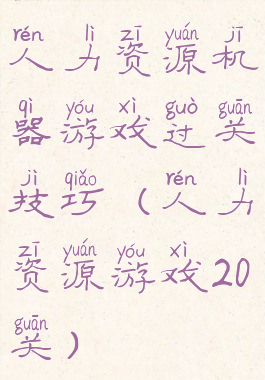 rén lì zī yuán jī
人力资源机
qì yóu xì guò guān
器游戏过关
jì qiǎo rén lì
技巧（人力
zī yuán yóu xì
资源游戏20
guān
关）